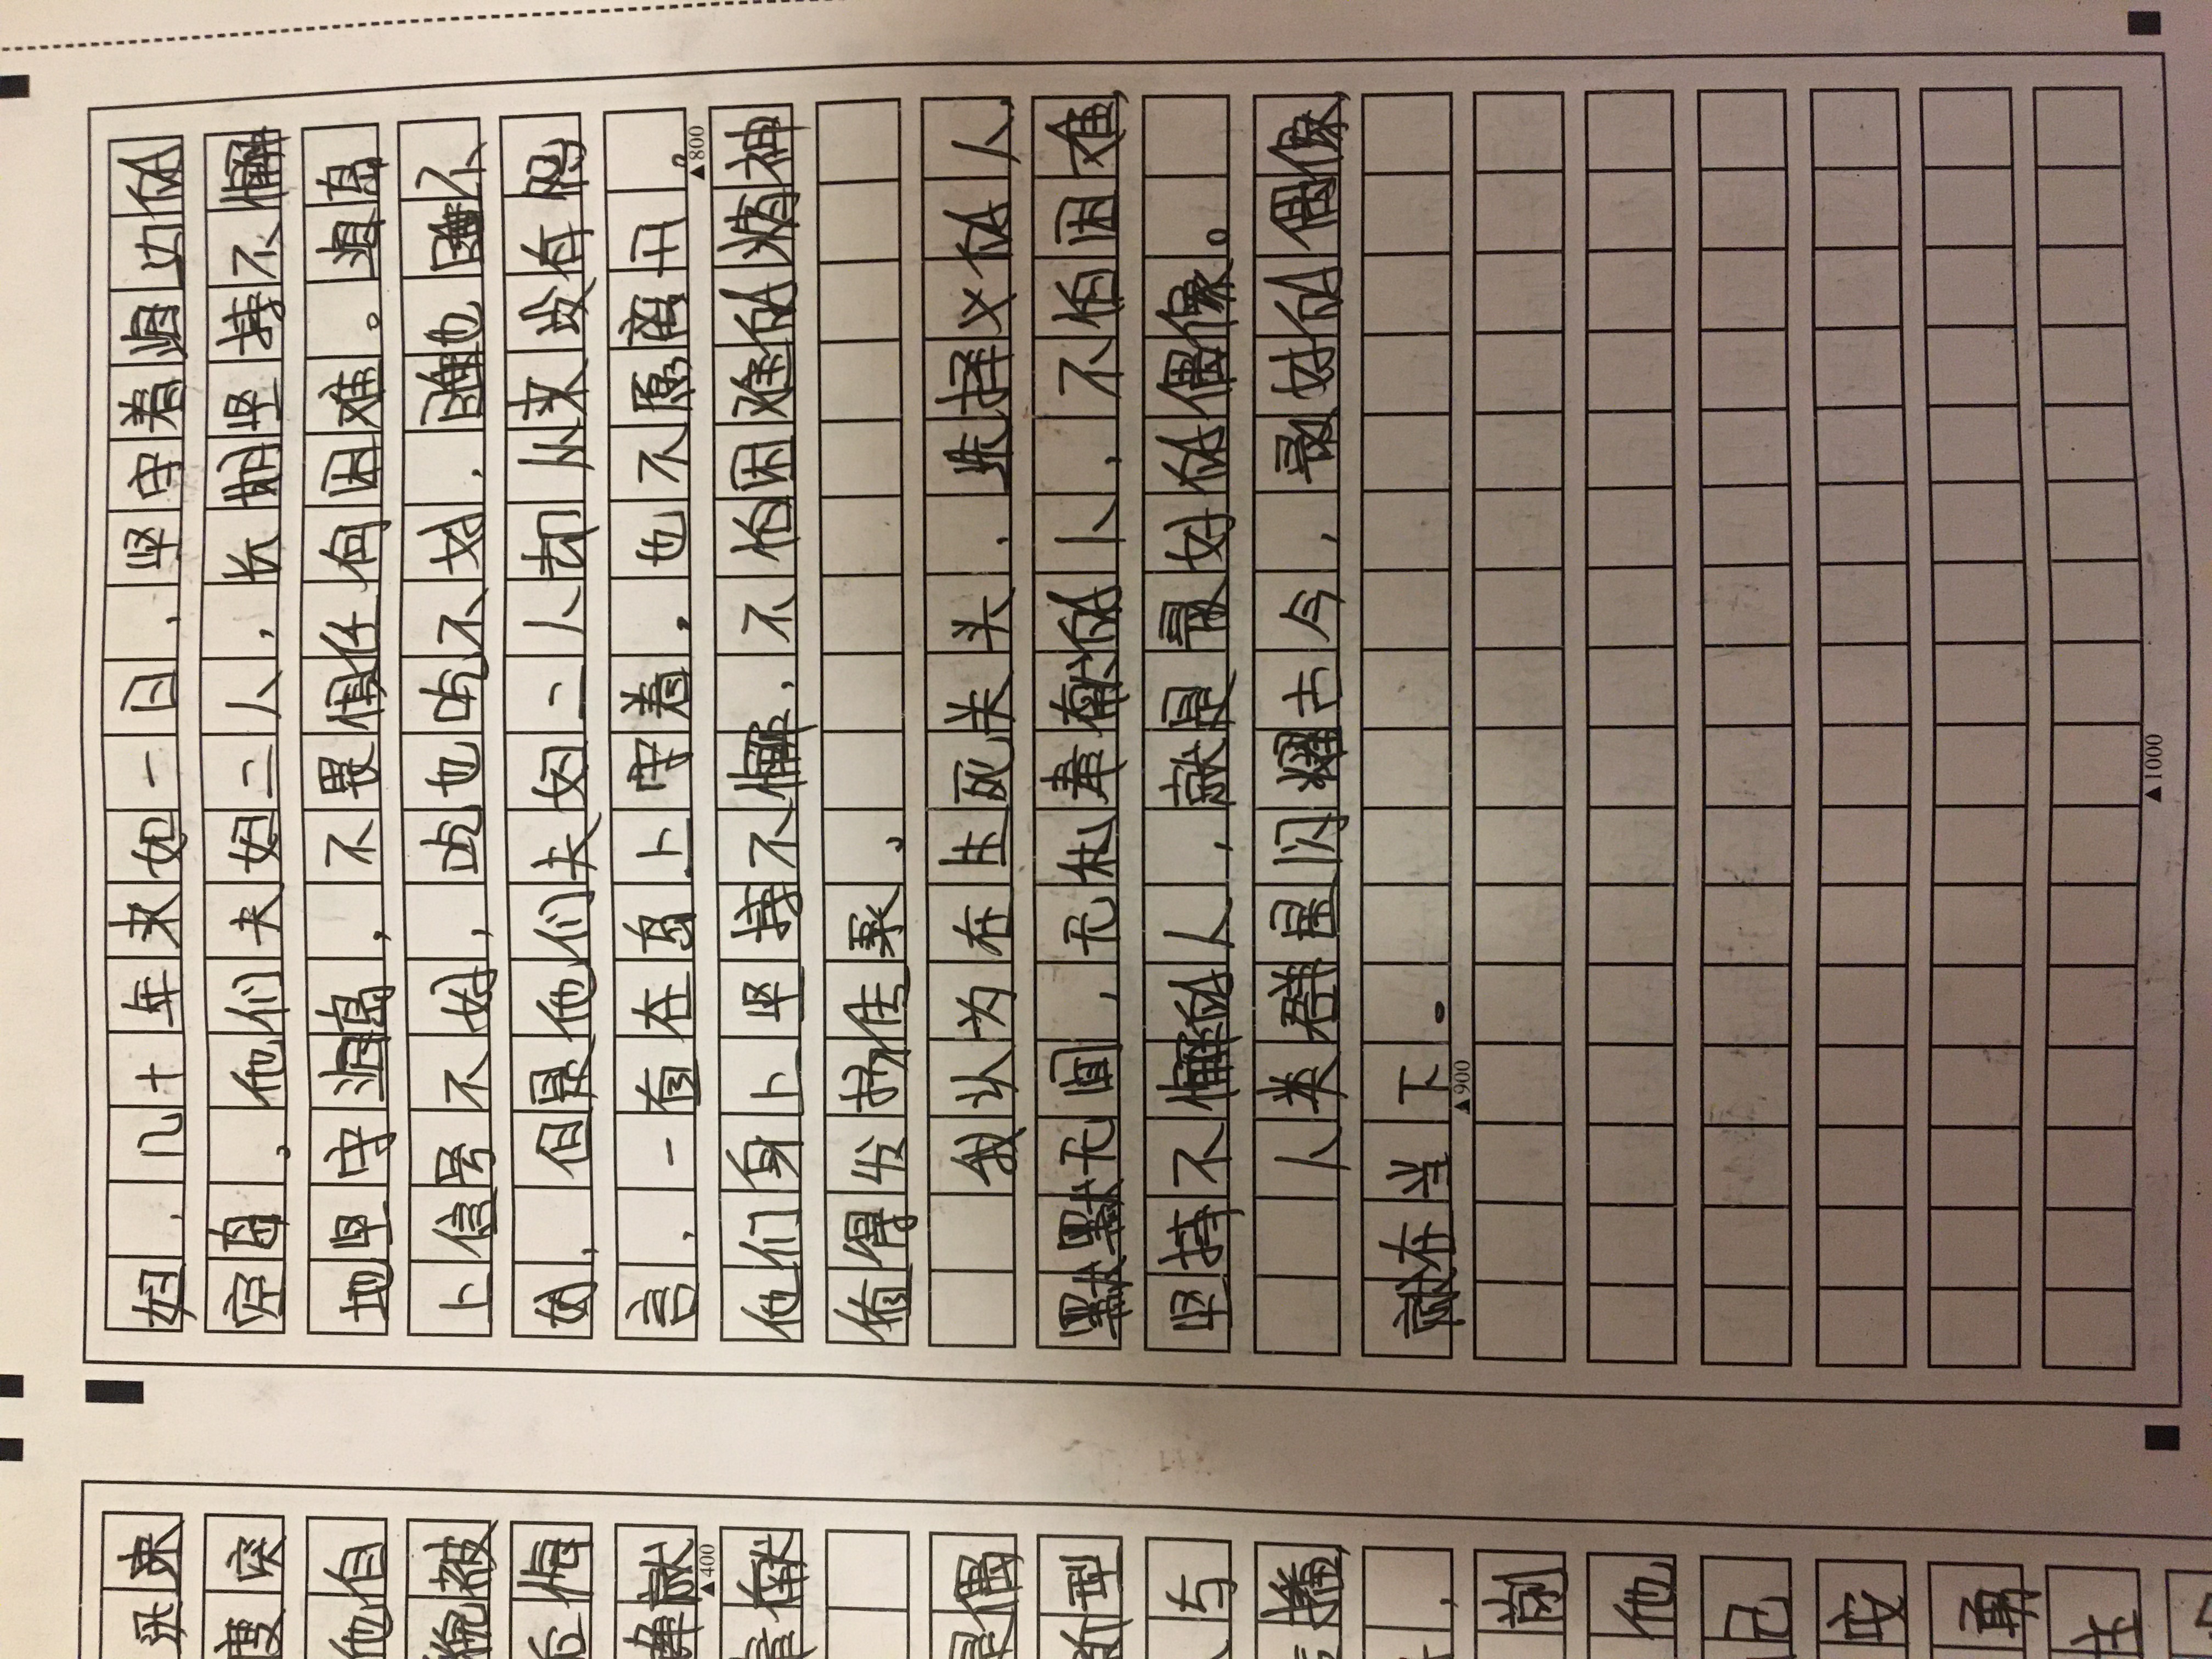 突
他自
被
就
▲400
献
偶
型
与
播
，
刻
他
己
成
勇
妇，几十年来如一日，坚守着海边的
空岛，他们夫妇二人，长期坚持不懈
地坚守海岛，不畏惧任何困难。海岛
上信号不好，吃也吃不好，睡也睡不
好，但是他们夫妇二人却从来没有怨
言，一直在岛上守着，也不愿离开。
▲800
他们身上坚持不懈，不怕困难的精神
值得发扬传承。
我认为在生死关头，选择义的人，
默默无闻，无私奉献的人，不怕困难，
坚持不懈的人，就是最好的偶像。
人类群星闪耀古今，最好的偶像，
就在当下。
▲900
▲1000